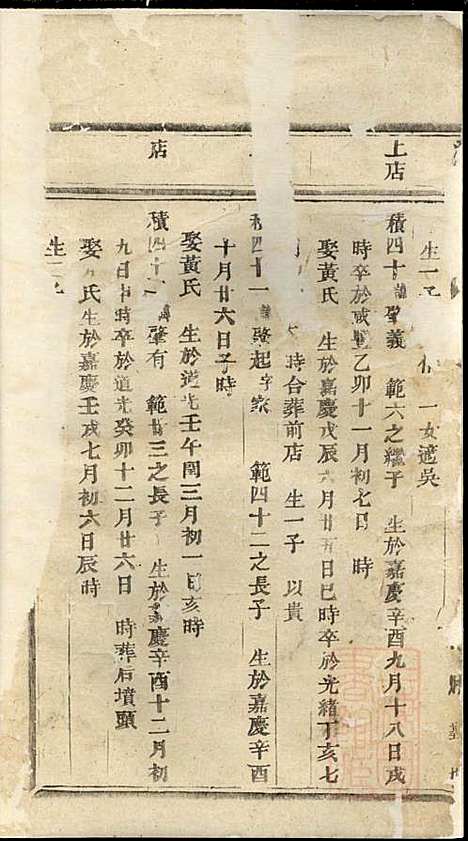 上店
店
生一子 一女適吳
積四十 肇義 範六之繼子 生於嘉慶辛酉九月十八日戌
時卒於咸豐乙卯十一月初七日 時
娶黃氏 生於嘉慶戊辰六月廿五日巳時卒於光緒丁亥七
月 時合葬前店 生一子 以貴
積四十一 肇起 字家 範四十二之長子 生於嘉慶辛酉
十月廿六日子時
娶黃氏 生於道光壬午閏三月初一日亥時
積四十 肇有 範廿三之長子 生於嘉慶辛酉十二月初
九日 時卒於道光癸卯十二月廿六日 時葬后墳頭
娶 氏生於嘉慶壬戌七月初六日辰時
生一子